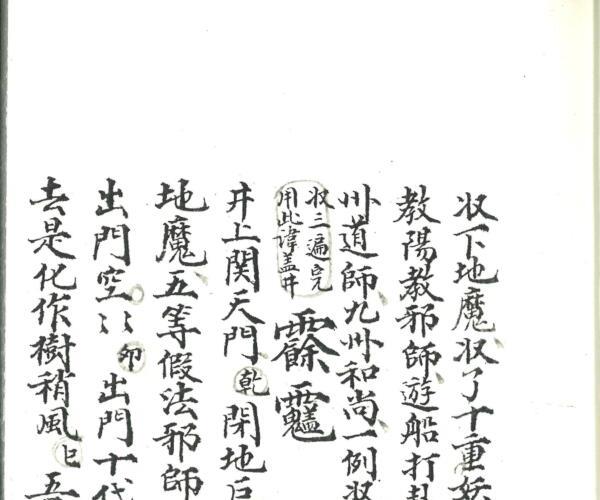 収下地魔收了十重妖
教陽教邪師遊船打卦
卅道師九卅和尚一例收
収三遍完
用此諱盖井
井上関天門乾閉地戶
地魔五等假法邪師
出門空〻卯出門十代
去是化作樹稍風巳吾